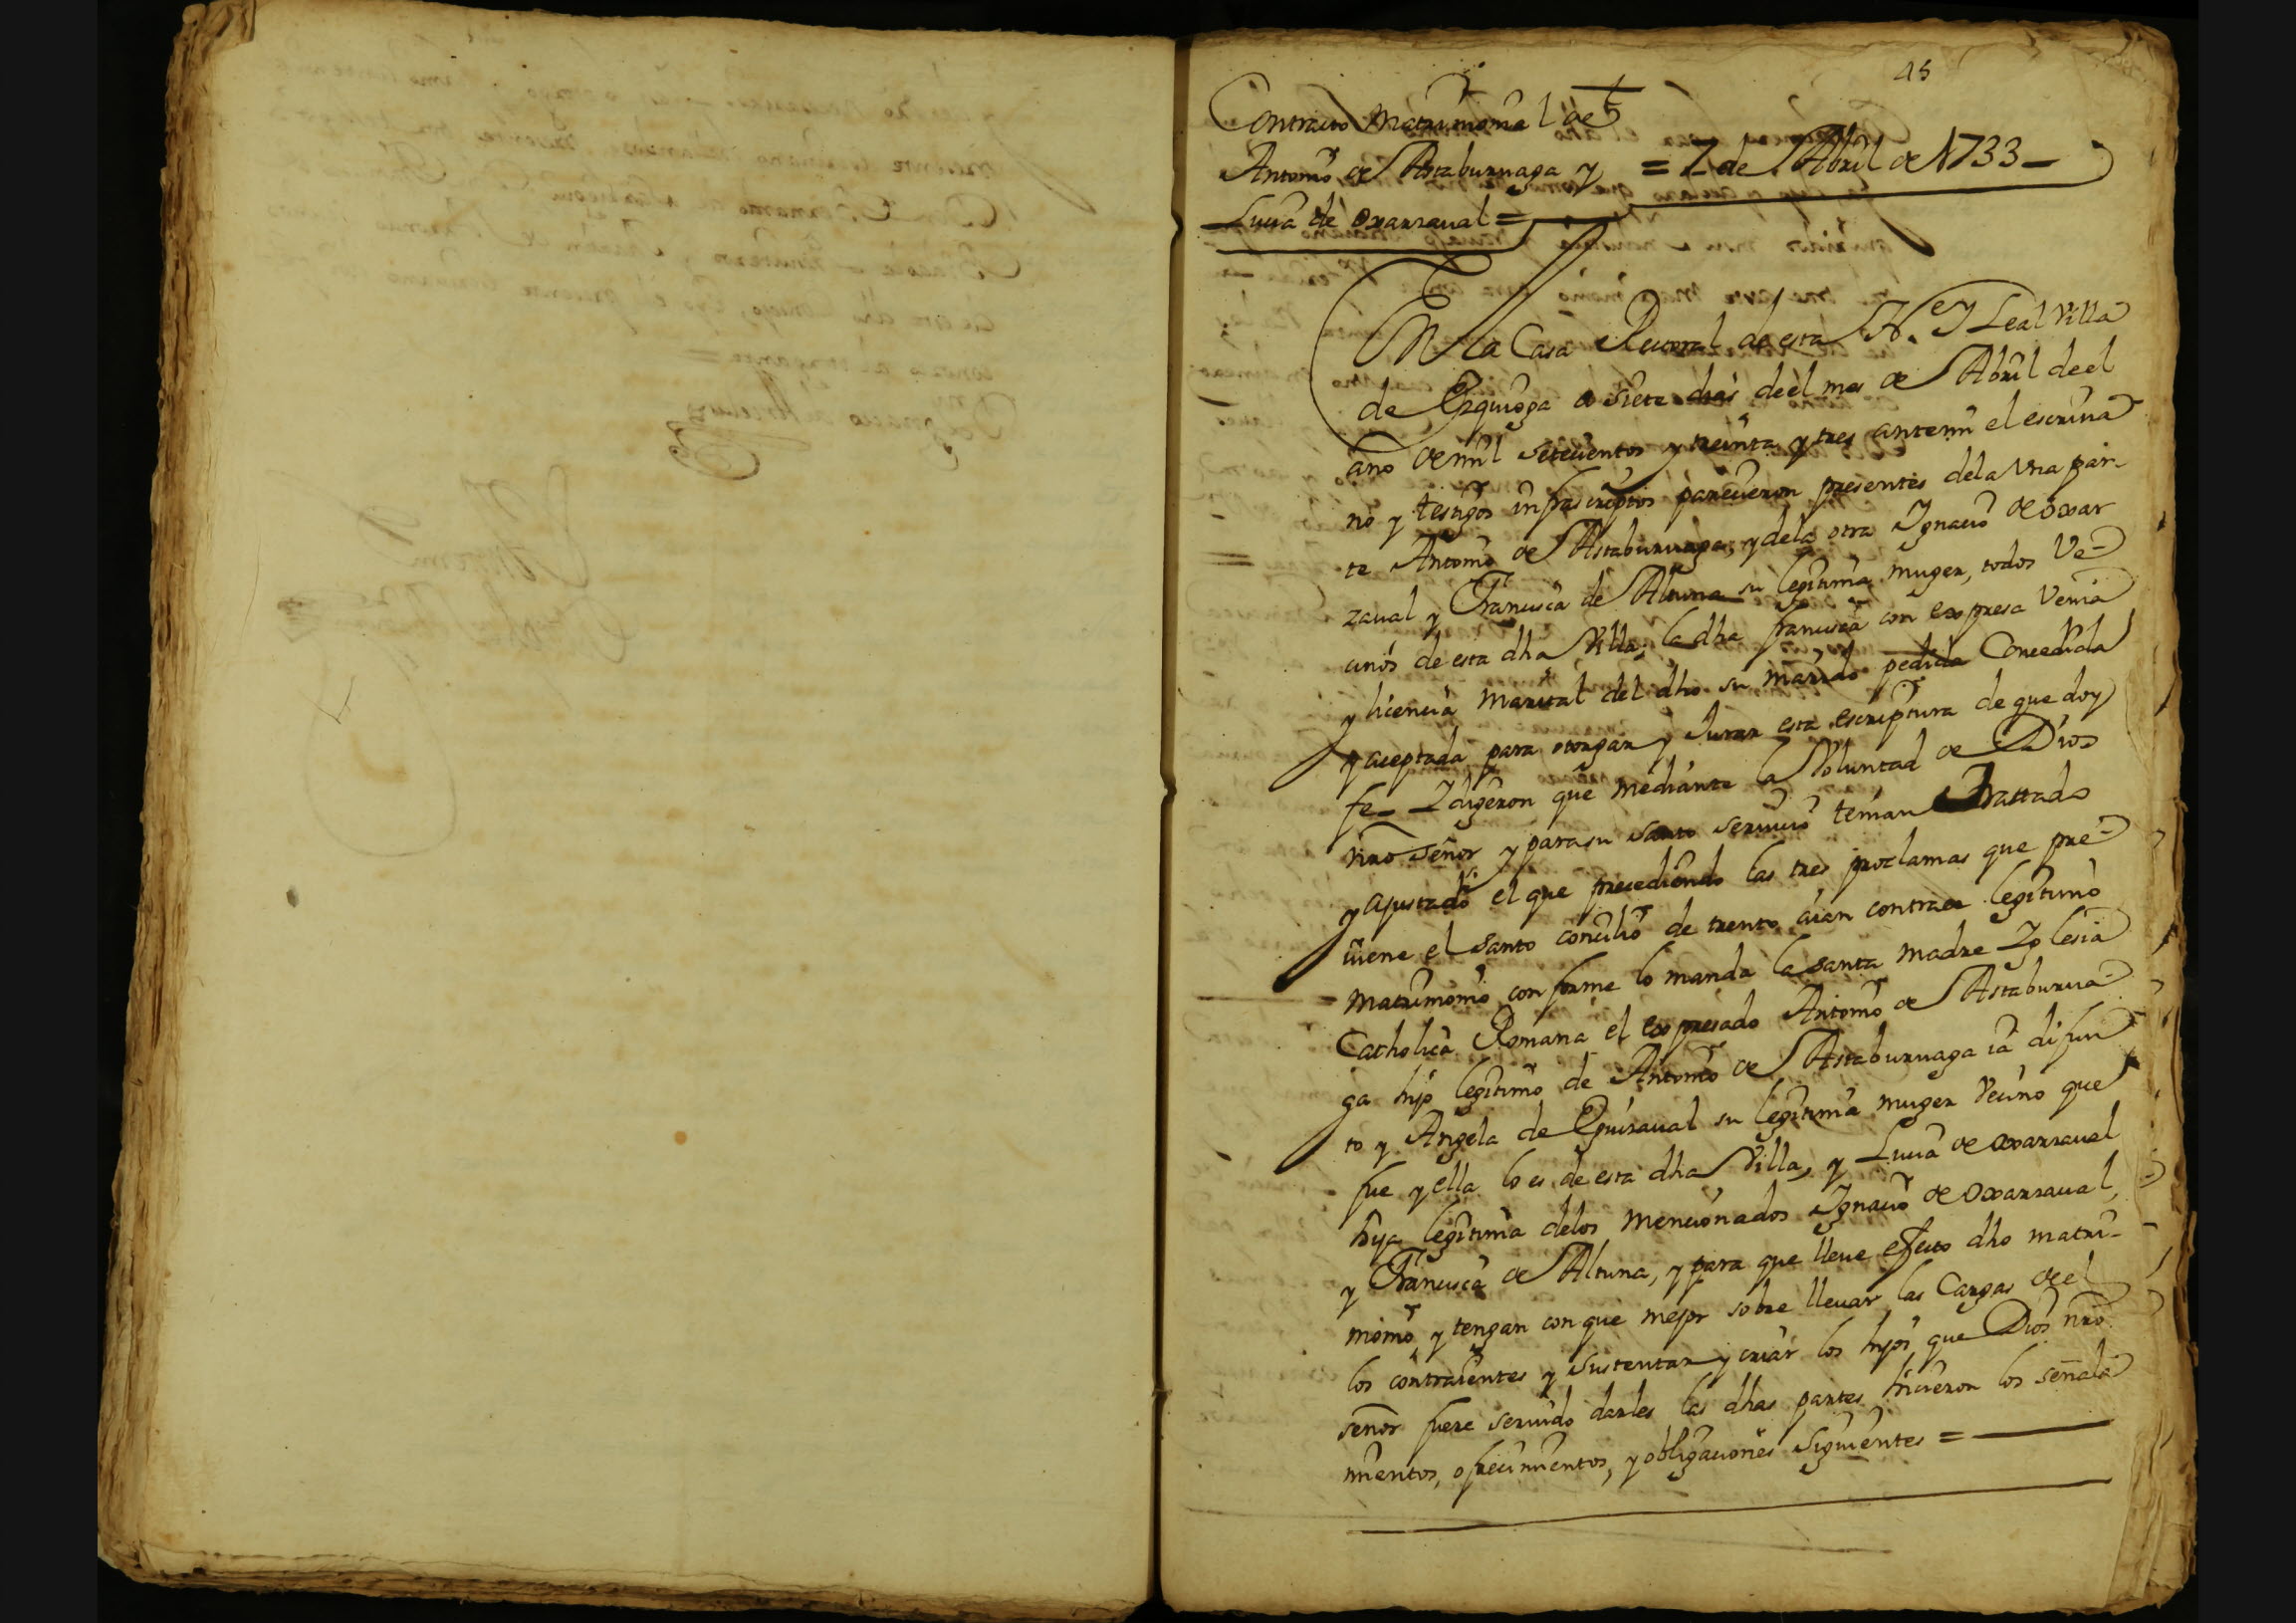 45
Contracto Matrimonial de
Antonio de Astaburuaga y = 7 de Abril de 1733 —
Lucia de oxarzaval =
En la Casa Rectoral de esta N. y Leal Villa
de Ezquioga a siete dias de el mes de Abril de el
año de mil setecientos y treinta y tres antemi el escriva
no y testigos infrascriptos parecieron presentes de la Una par-
te Antonio de Astaburuaga, y de la otra Ignacio de oxar
zaval y Francisca de Altuna su legitima muger, todos Ve-
cinos de esta dha Villa, la dha francisca con expresa Venia
y licencia Marital del dho su marido pedida Concedida
y aceptada para otorgar y Jurar esta escriptura de que doy
fe_ I digeron que mediante la Voluntad de Dios
nro Señor y para su santo servicio tenian Trattado
y ajustado el que precediendo las tres proclamas que pre-
viene el Santo concilio de trento aian contraer legitimo
Matrimonio conforme lo manda la santa madre Iglesia
Catholica Romana el expresado Antonio de Astaburua-
ga hijo legitimo de Antonio de Astaburuaga ia difun
to y Angela de Eguizaval su legitima muger Vecino que
fue y ella lo es de esta dha Villa, y Lucia de oxarzaval
hija legitima delos mencionados Ignacio de Oxarzaval,
y Francisca de Altuna, y para que lleve efecto dho matri-
monio, y tengan con que mejor sobre llevar las Cargas de el
los contraientes y sustentar y criar los hijos que Dios nro
señor fuere servido darles, las dhas partes hicieron los señala
mientos, ofrecimientos, y obligaciones siguientes =